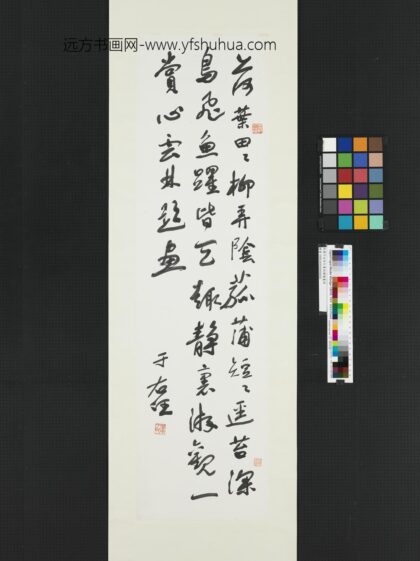 远方书画网-www.yfshuhua.com
荷葉田〻柳弄陰菰蒲短〻逕苔深
鳥飛魚躍皆天趣靜裏游觀一
賞心雲林題畫
于右任